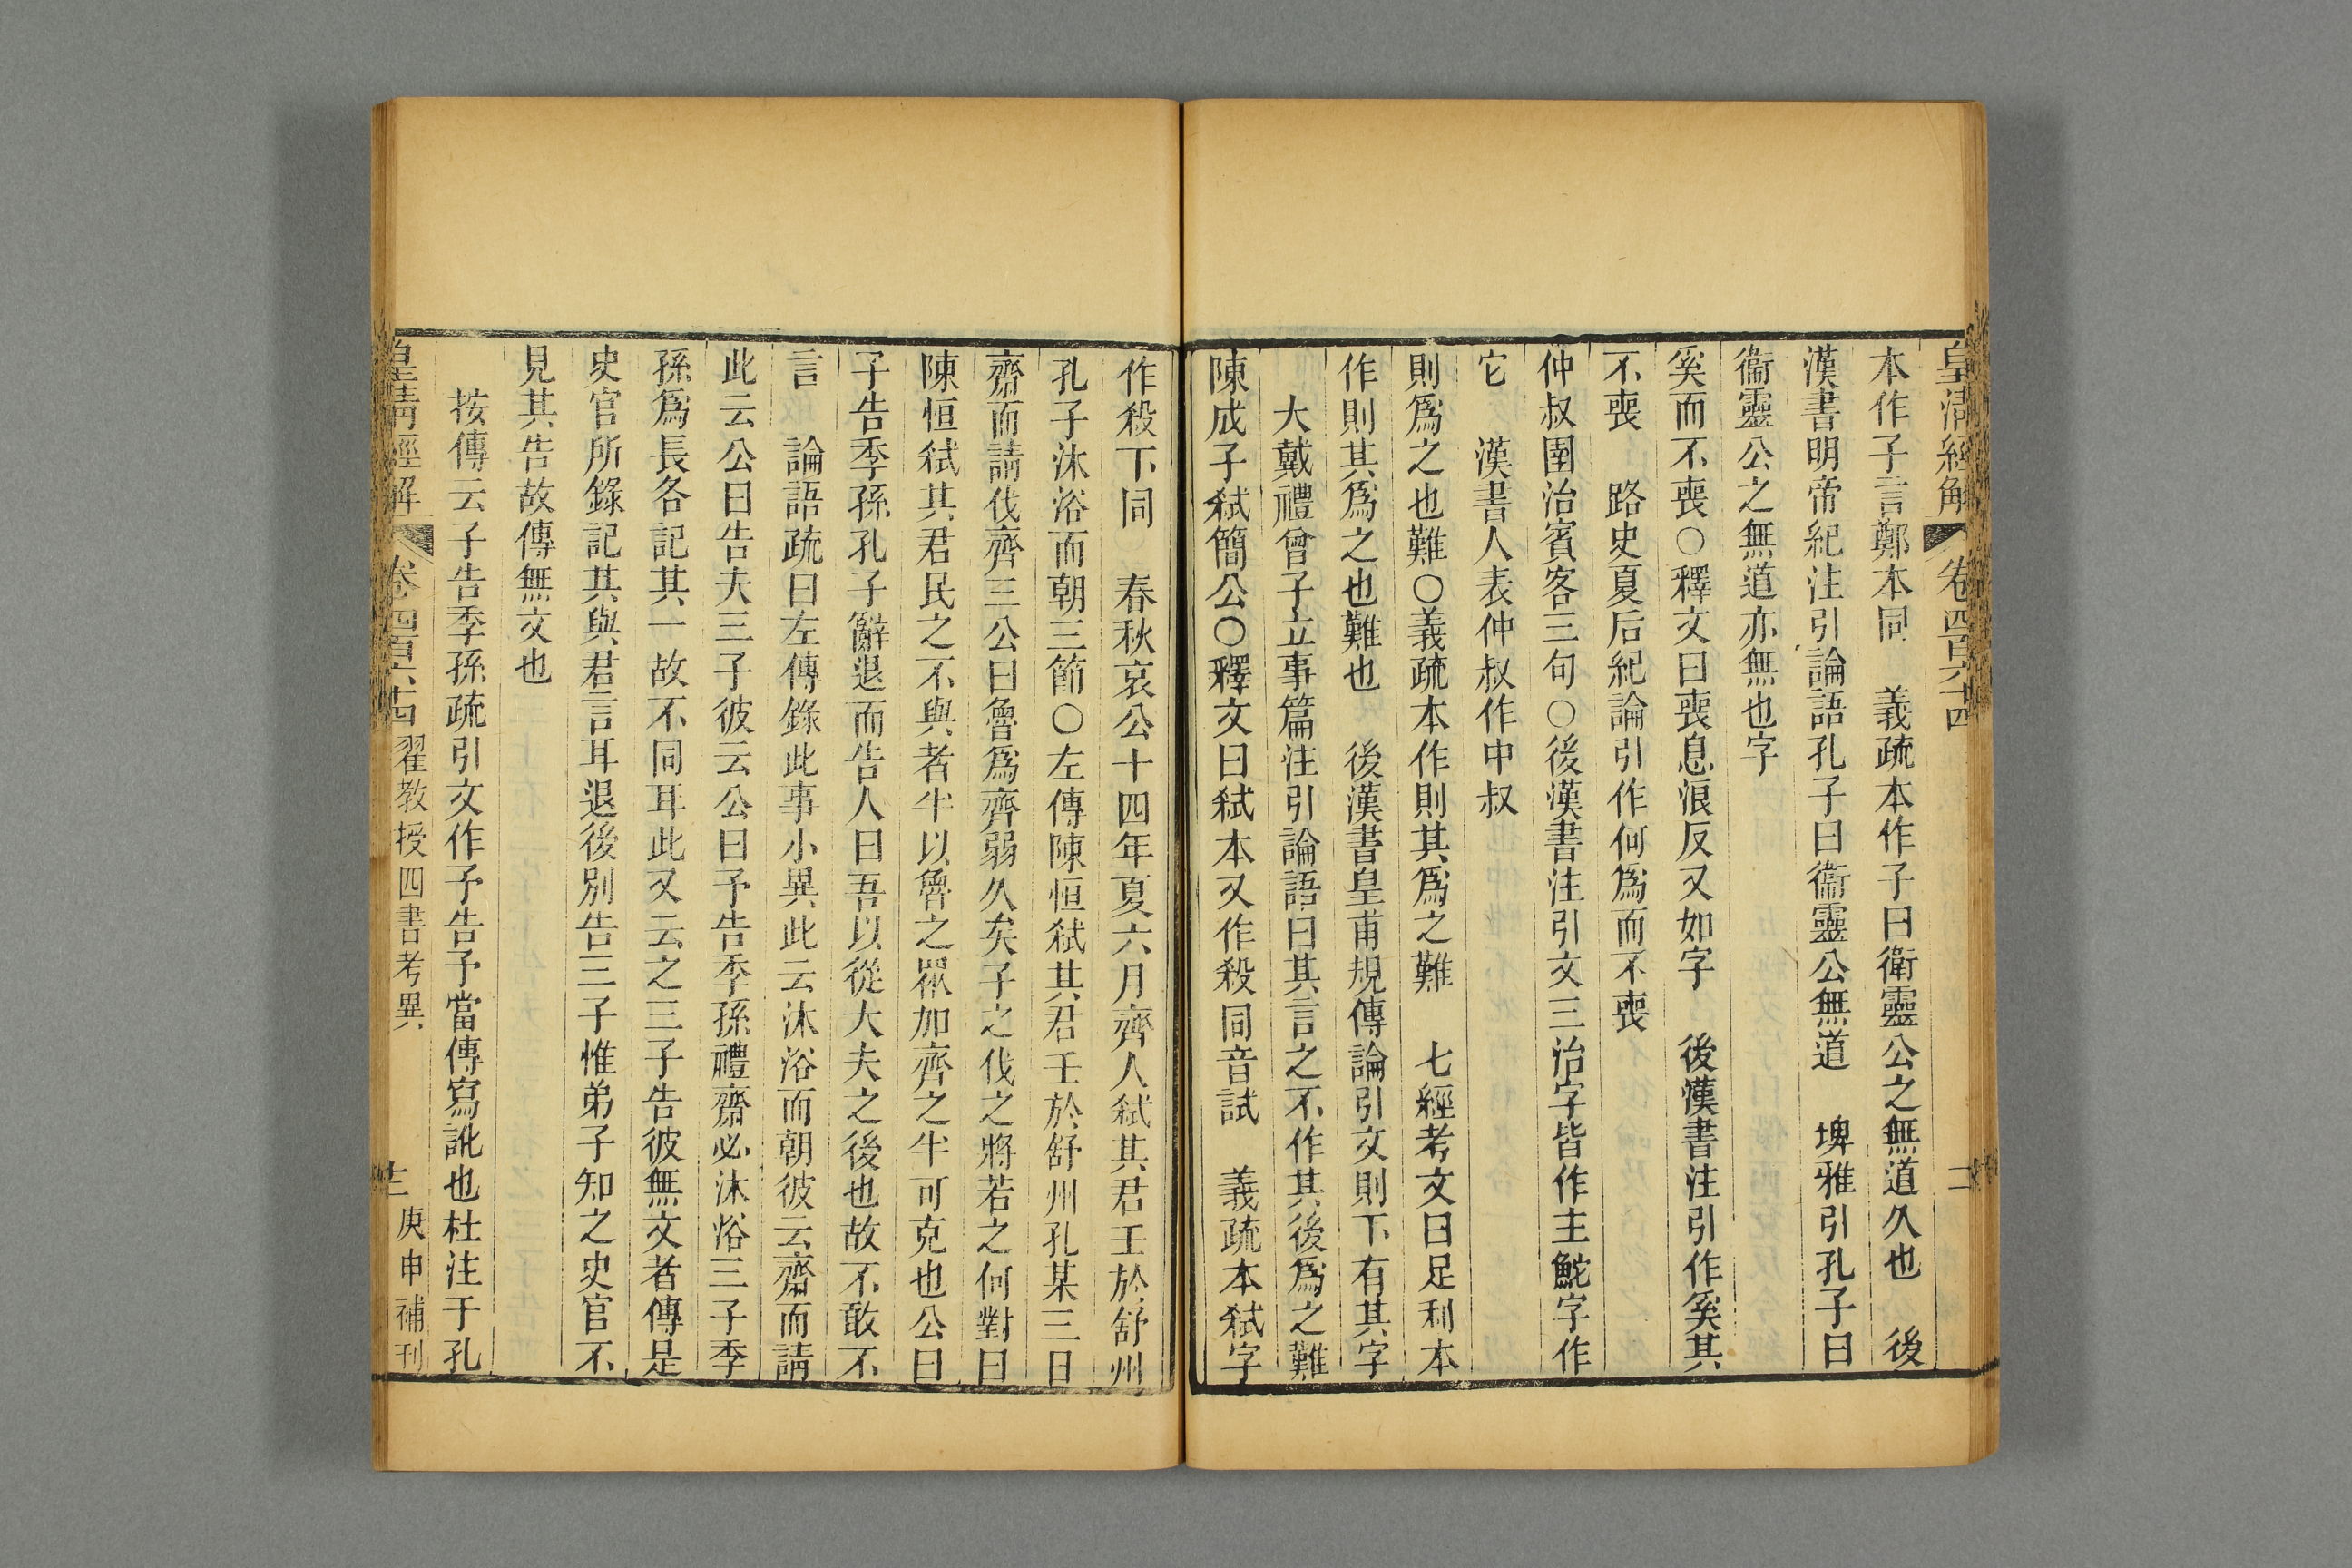 皇清經解 卷四百六十四
本作子言鄭本同 義疏本作子曰衛靈公之無道久也 後
漢書明帝紀注引論語孔子曰衞靈公無道 埤雅引孔子曰
衞靈公之無道亦無也字
奚而不喪○釋文曰喪息浪反又如字 後漢書注引作奚其
不喪 路史夏后紀論引作何爲而不喪
仲叔圉治賓客三句○後漢書注引文三治字皆作主鮀字作
它 漢書人表仲叔作中叔
則爲之也難○義疏本作則其爲之難 七經考文曰足利本
作則其爲之也難也 後漢書皇甫規傳論引文則下有其字
大戴禮曾子立事篇注引論語曰其言之不怍其後爲之難
陳成子弒簡公○釋文曰弒本又作殺同音試 義疏本弒字
作殺下同 春秋哀公十四年夏六月齊人弒其君壬於舒州
孔子沐浴而朝三節○左傳陳恒弒其君壬於舒州孔某三日
齋而請伐齊三公曰魯爲齊弱久矣子之伐之將若之何對曰
陳恒弒其君民之不與者半以魯之眾加齊之半可克也公曰
子告季孫孔子辭退而告人曰吾以從大夫之後也故不敢不
言 論語疏曰左傳錄此事小異此云沐浴而朝彼云齋而請
此云公曰告夫三子彼云公曰予告季孫禮齋必沐浴三子季
孫爲長各記其一故不同耳此又云之三子告彼無文者傳是
史官所錄記其與君言耳退後別告三子惟弟子知之史官不
見其告故傳無文也
按傳云子告季孫疏引文作予告予當傳寫訛也杜注于孔
皇清經解 卷四百六十四 翟教授四書考異 十二 庚申補刊